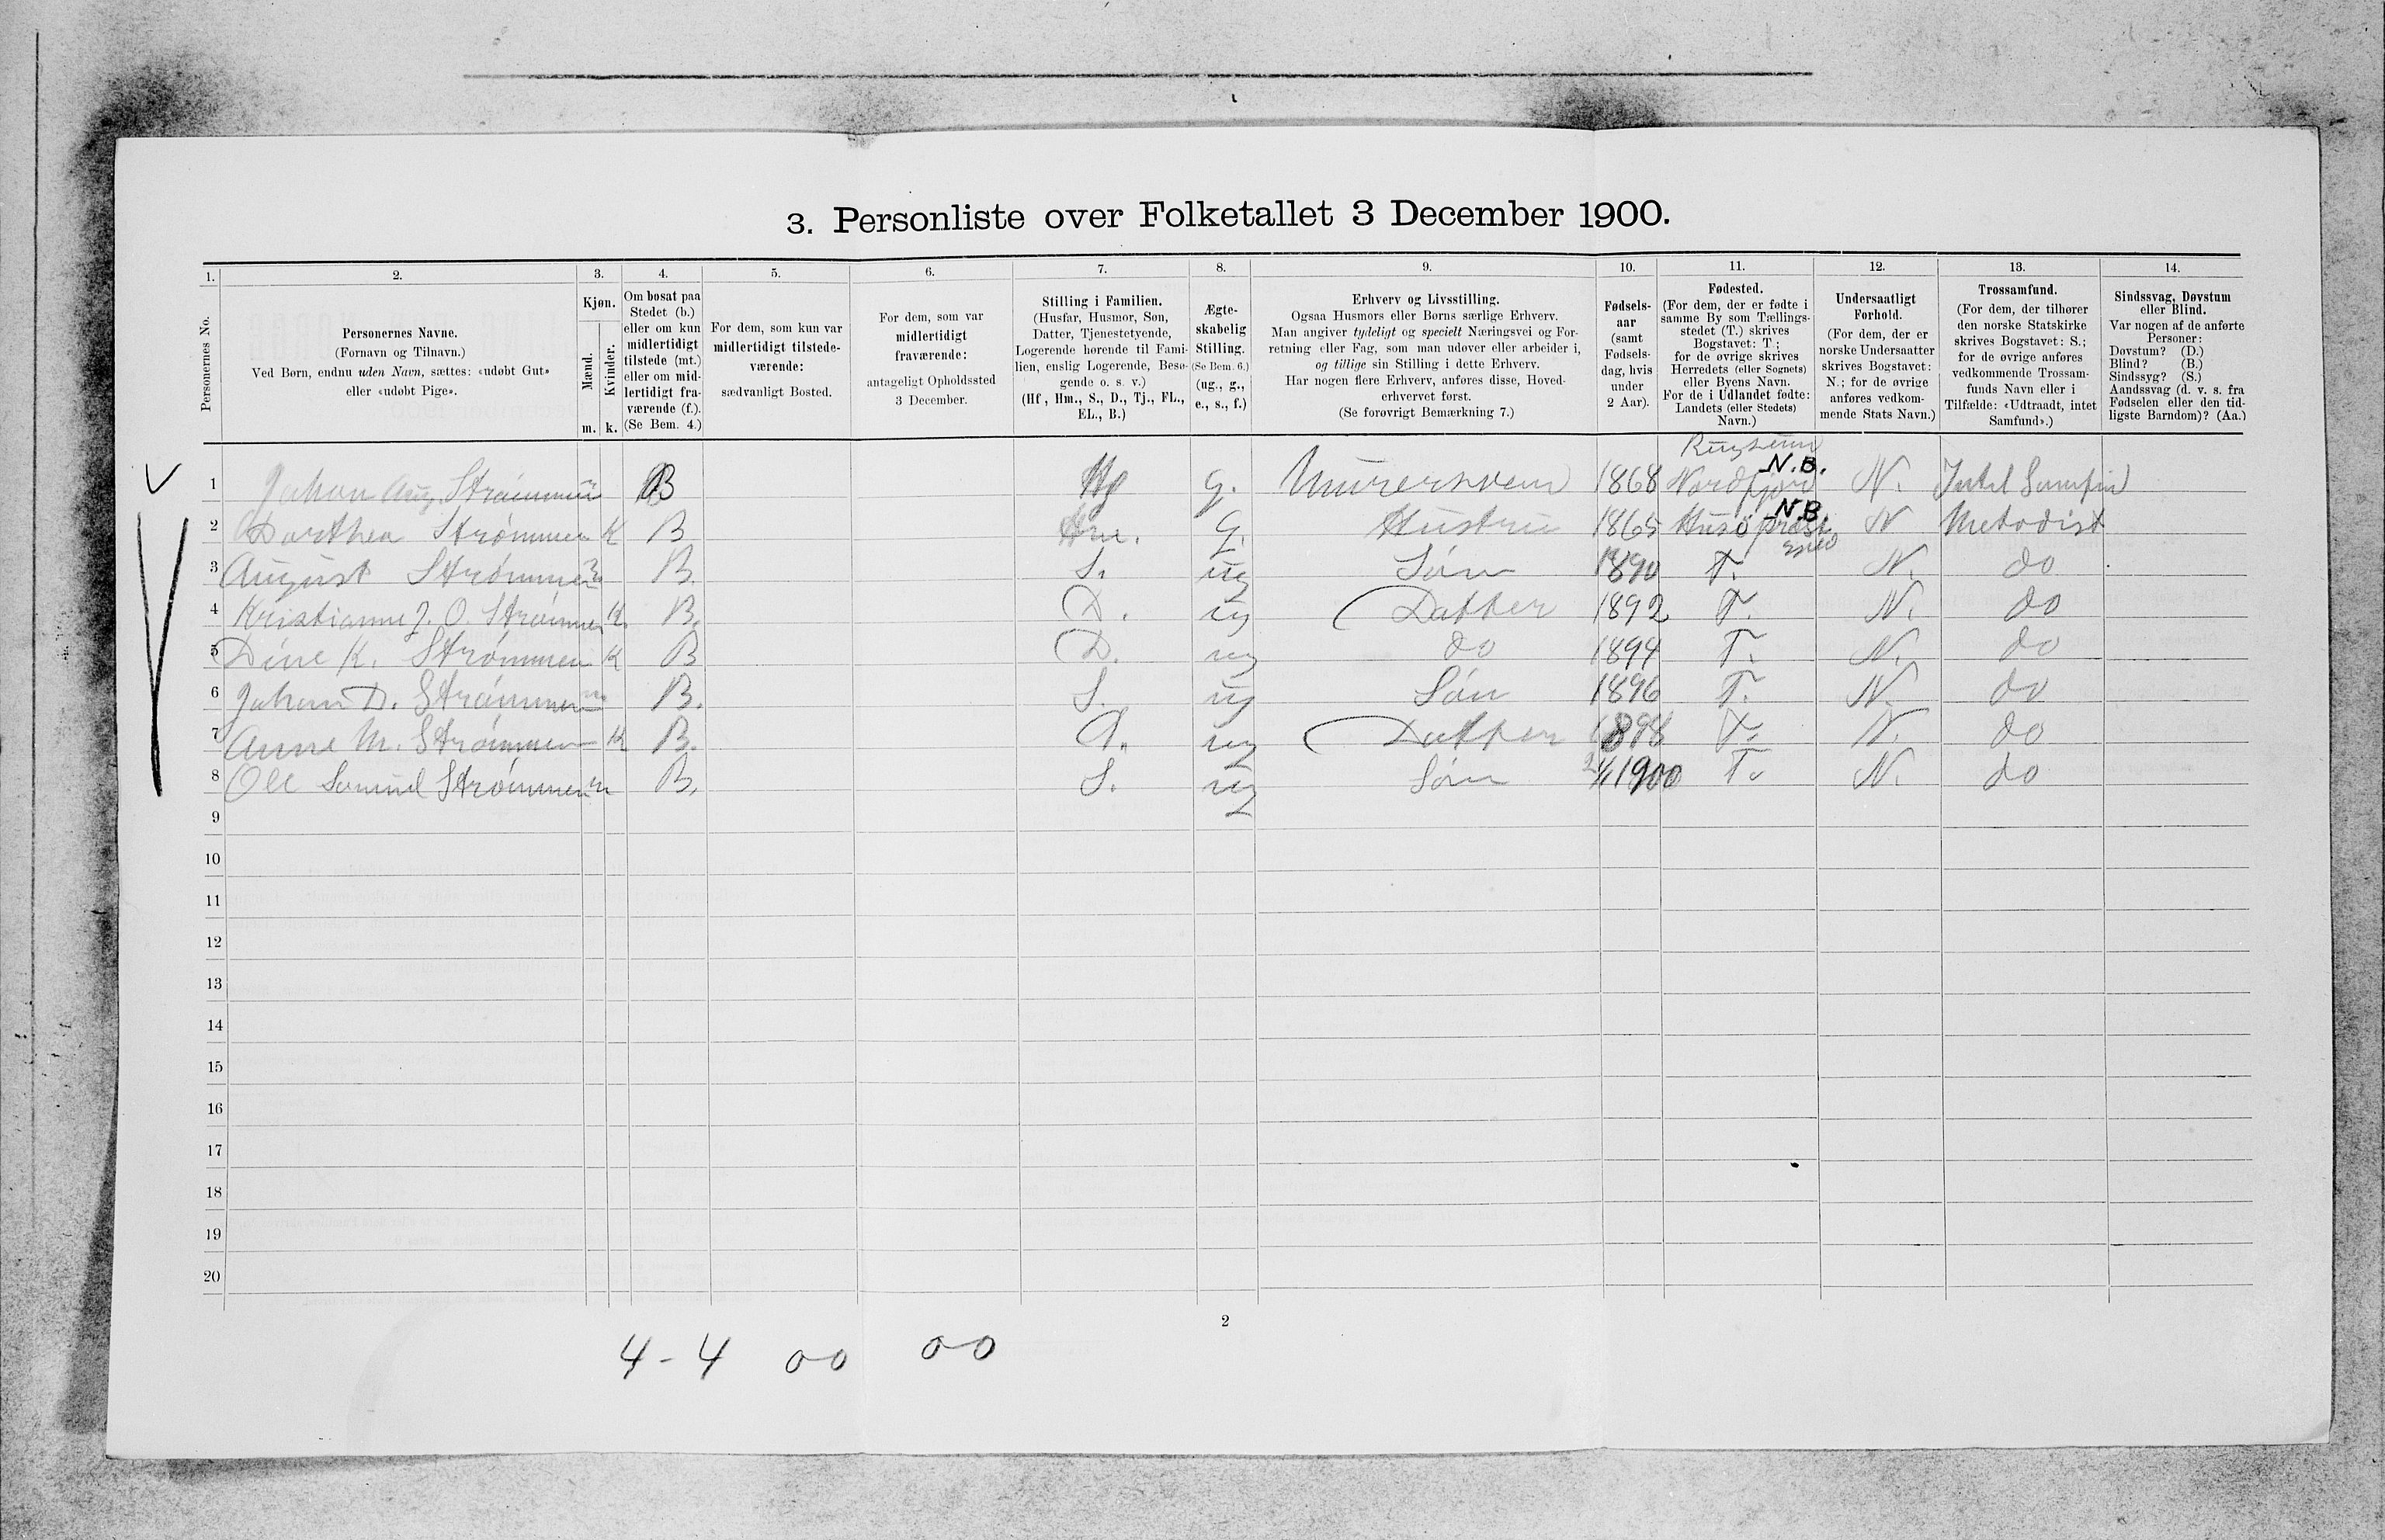 3. Personliste over Folketallet 3 December 1900.
1. 2. 3. 4. 5. 6. 7. 8. 9. 10. 11. 12. 13. 14.
Personernes No.
Personernes Navne.
(Fornavn og Tilnavn.)
Ved Børn, endnu uden Navn, sættes: «udøbt Gut»
eller «udøbt Pige».
Kjøn.
Mænd.
Kvinder.
m. k.
Om bosat paa
Stedet (b.)
eller om kun
midlertidigt
tilstede (mt.)
eller om mid-
lertidigt fra-
værende (f.).
(Se Bem. 4.)
For dem, som kun var
midlertidigt tilstede-
værende:
sædvanligt Bosted.
For dem, som var
midlertidigt
fraværende:
antageligt Opholdssted
3 December.
Stilling i Familien.
(Husfar, Husmor, Søn,
Datter, Tjenestetyende,
Logerende hørende til Fami-
lien, enslig Logerende, Besø-
gende o. s. v.)
(Hf, Hm., S., D., Tj., FL.,
EL., B.)
Ægte-
skabelig
Stilling.
(Se Bem. 6.)
(ug., g.,
e., s., f.)
Erhverv og Livsstilling.
Ogsaa Husmors eller Børns særlige Erhverv.
Man angiver tydeligt og specielt Næringsvei og For-
retning eller Fag, som man udøver eller arbeider i,
og tillige sin Stilling i dette Erhverv.
Har nogen flere Erhverv, anføres disse, Hoved-
erhvervet først.
(Se forøvrigt Bemærkning 7.)
Fødsels-
aar
(samt
Fødsels-
dag, hvis
under
2 Aar).
Fødested.
(For dem, der er fødte i
samme By som Tællings-
stedet (T.) skrives
Bogstavet: T;
for de øvrige skrives
Herredets (eller Sognets)
eller Byens Navn.
For de i Udlandet fødte:
Landets (eller Stedets)
Navn.)
Undersaatligt
Forhold.
(For dem, der er
norske Undersaatter
skrives Bogstavet:
N.; for de øvrige
anføres vedkom-
mende Stats Navn.)
Trossamfund.
(For dem, der tilhører
den norske Statskirke
skrives Bogstavet: S.;
for de øvrige anføres
vedkommende Trossam-
funds Navn eller i
Tilfælde: «Udtraadt, intet
Samfund».)
Sindssvag, Døvstum
eller Blind.
Var nogen af de anførte
Personer:
Døvstum? (D.)
Blind? (B.)
Sindssyg? (S.)
Aandssvag (d. v. s. fra
Fødselen eller den tid-
ligste Barndom)? (Aa.)
Rugsund
N.B.
1 Johan Aug. Strømmen m B Hf g. Murersvend 1868 Nordfjord N. Intet Samfund
N.B.
2 Dorthea Strømmen K B Hm. g. Hustru 1865 Husø præst N Metodist
3 August Strømmen B. S. ug Søn 1890 T. N. do
4 Kristianne J. O. Strømmen K. B. D. ug Datter 1892 T. N. do
5 Dine K. Strømmen K B D. ug do 1894 T. N. do
6 Johan D. Strømmen m B. S. ug Søn 1896 T. N. do
7 Anne M. Strømmen K B. D. ug Datter 1898 T. N. do
8 Ole Samuel Strømmen m B. S. ug Søn 1900 T. N. do
9
10
11
12
13
14
15
16
17
18
19
20
2
4-4 00 00